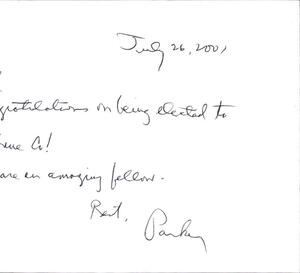 July 26, 2001
gratulations on being elected to
Co!
are an amazing fellow.
Best,